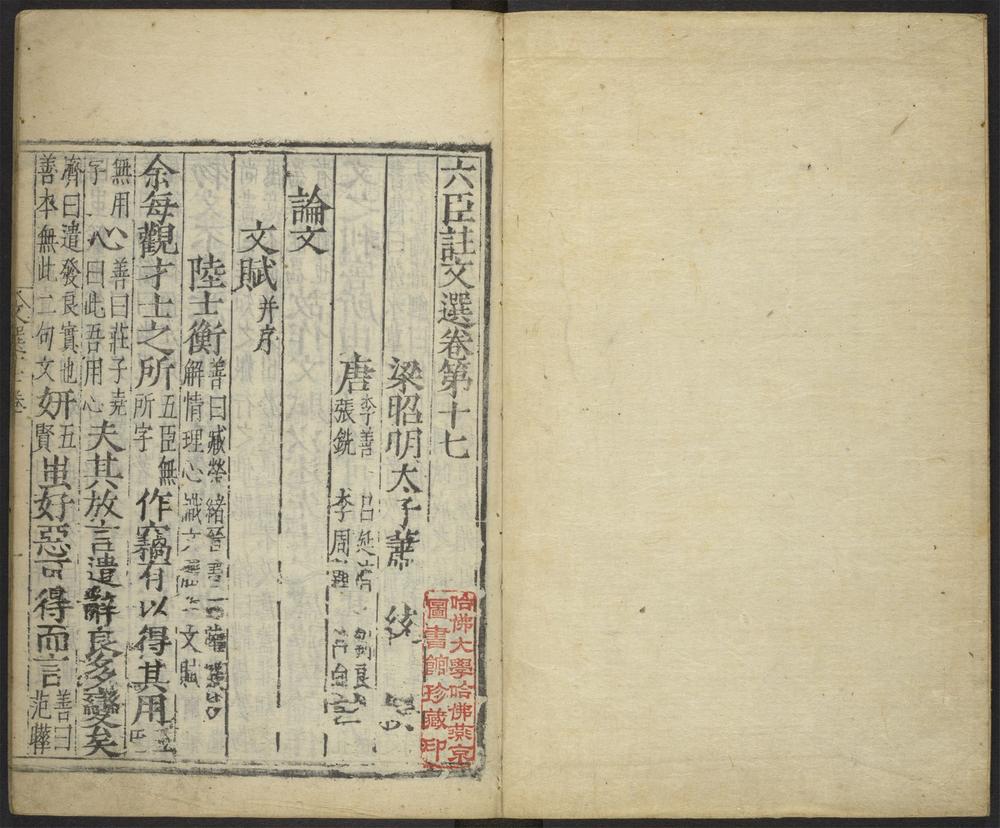 六臣註文選卷第十七
梁昭明太子蕭
唐李善 呂延濟 劉良
張銑 李周翰
論文
文賦并序
陸士衡善曰臧榮緒晉書
解情理心識文 文賦
余每觀才士之所五臣無
所字作竊有以得其用
無用
字心善曰莊子堯
曰此吾用心夫其放言遣辭良多變矣
濟曰遣發良實也
善本無此二句文妍五
賢蚩好惡可得而言善曰
范曄
哈佛大學哈佛燕京
圖書館珍藏印